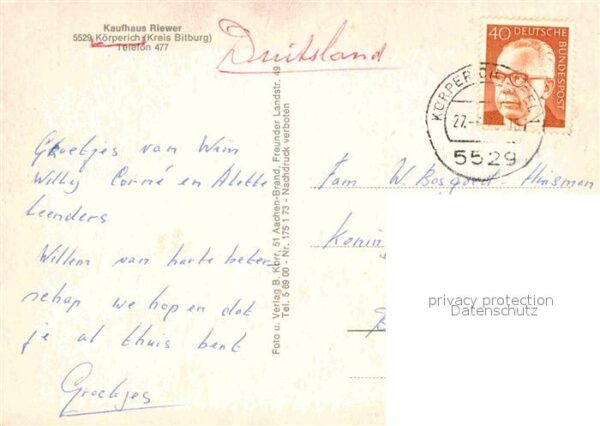 Kaufhaus Riewer
5529 Körperich (Kreis Bitburg)
Telefon 477
Duitsland
40 DEUTSCHE BUNDESPOST
KÖRPERICH
27.
5529
Groetjes van Wim
Willy Corné en Alette
Leenders
Willem van harte beter
schap we hopen dat
je al thuis bent
Groetjes
Foto u. Verlag B. Korr, 51 Aachen-Brand, Freunder Landstr. 49
Tel. 5 69 00 - Nr. 175 1 73 - Nachdruck verboten
Fam W.
privacy protection
Datenschutz